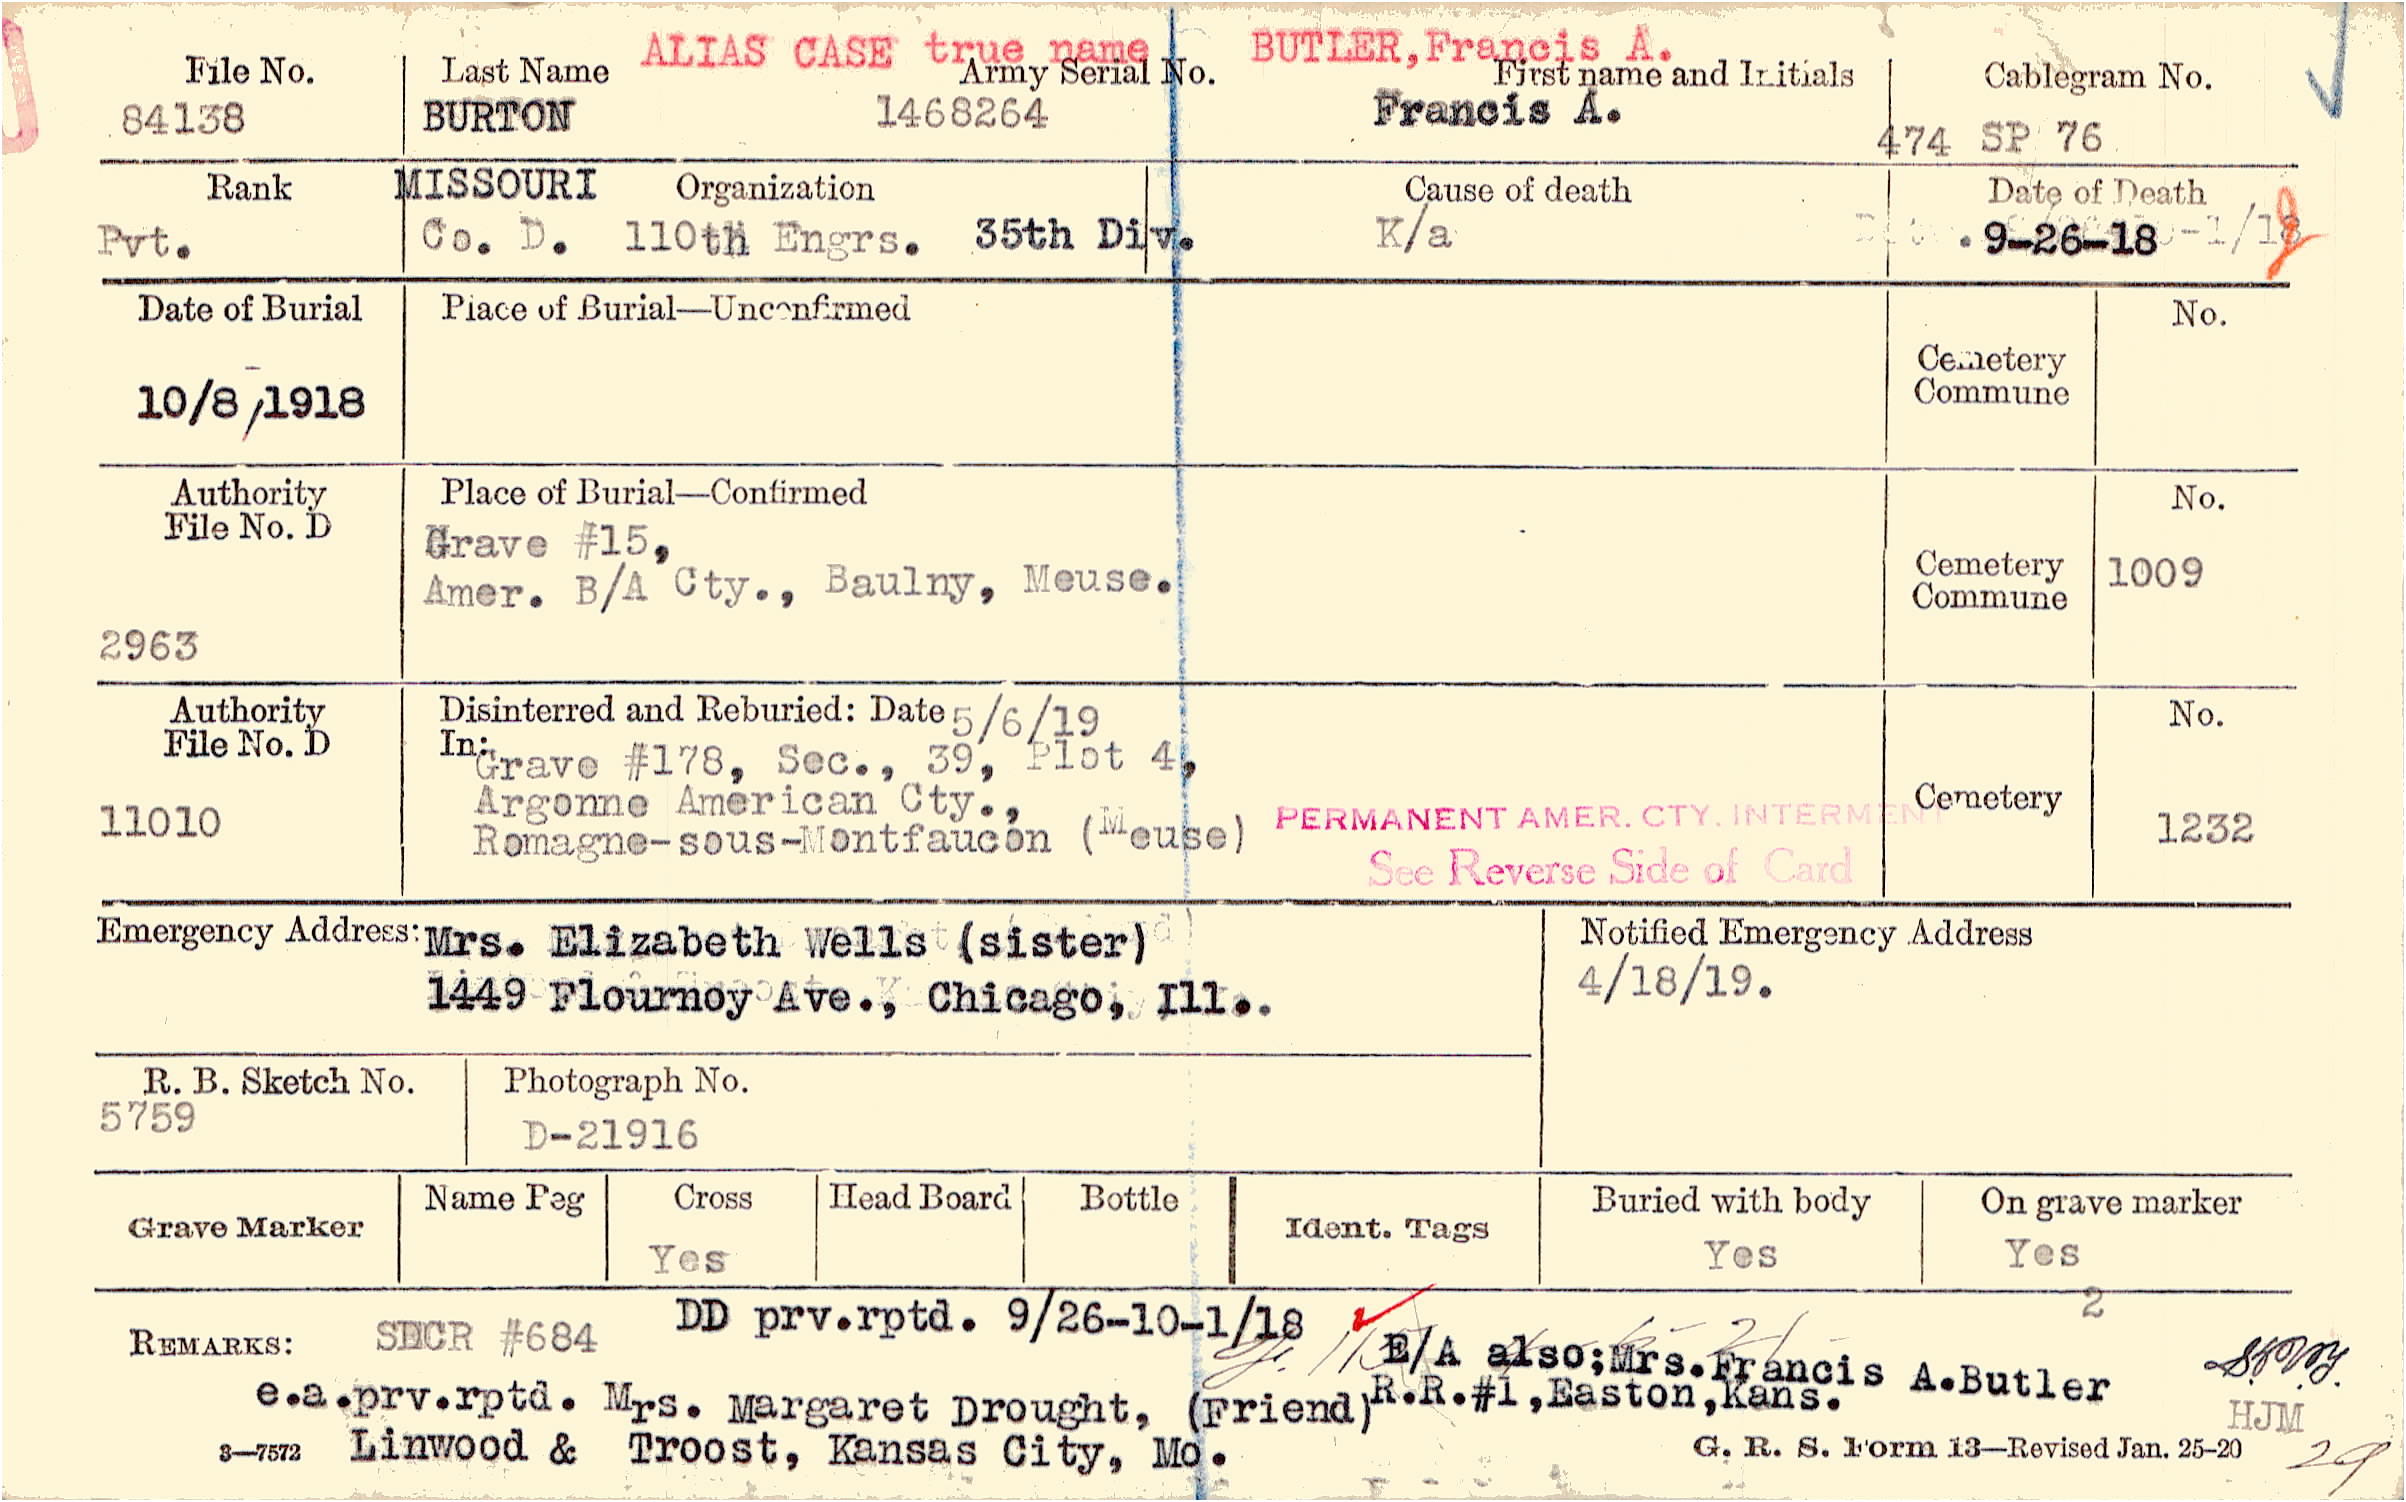 ALIAS CASE true name BUTLER,Francis A.
File No. Last Name Army Serial No. First name and Initials Cablegram No.
84138 BURTON 1468264 Francis A. 474 SP 76
Rank MISSOURI Organization Cause of death Date of Death
Pvt. Co. D. 110th Engrs. 35th Div. K/a 9-26-18
Date of Burial Place of Burial—Unconfirmed No.
10/8/1918 Cemetery
Commune
Authority Place of Burial—Confirmed No.
File No. D Grave #15,
Amer. B/A Cty., Baulny, Meuse. Cemetery 1009
Commune
2963
Authority Disinterred and Reburied: Date 5/6/19 No.
File No. D In: Grave #178, Sec., 39, Plot 4,
Argonne American Cty., Cemetery
11010 Romagne-sous-Montfaucon (Meuse) PERMANENT AMER. CTY. INTERMENT 1232
See Reverse Side of Card
Emergency Address: Mrs. Elizabeth Wells (sister) Notified Emergency Address
1449 Flournoy Ave., Chicago, Ill.. 4/18/19.
R. B. Sketch No. Photograph No.
5759 D-21916
Grave Marker Name Peg Cross Head Board Bottle Ident. Tags Buried with body On grave marker
Yes Yes Yes
2
REMARKS: SDCR #684 DD prv.rptd. 9/26-10-1/18
E/A also;Mrs.Francis A.Butler
R.R.#1,Easton,Kans.
e.a.prv.rptd. Mrs. Margaret Drought, (Friend)
HJM
3—7572 Linwood & Troost, Kansas City, Mo. G. R. S. Form 13—Revised Jan. 25-20
29